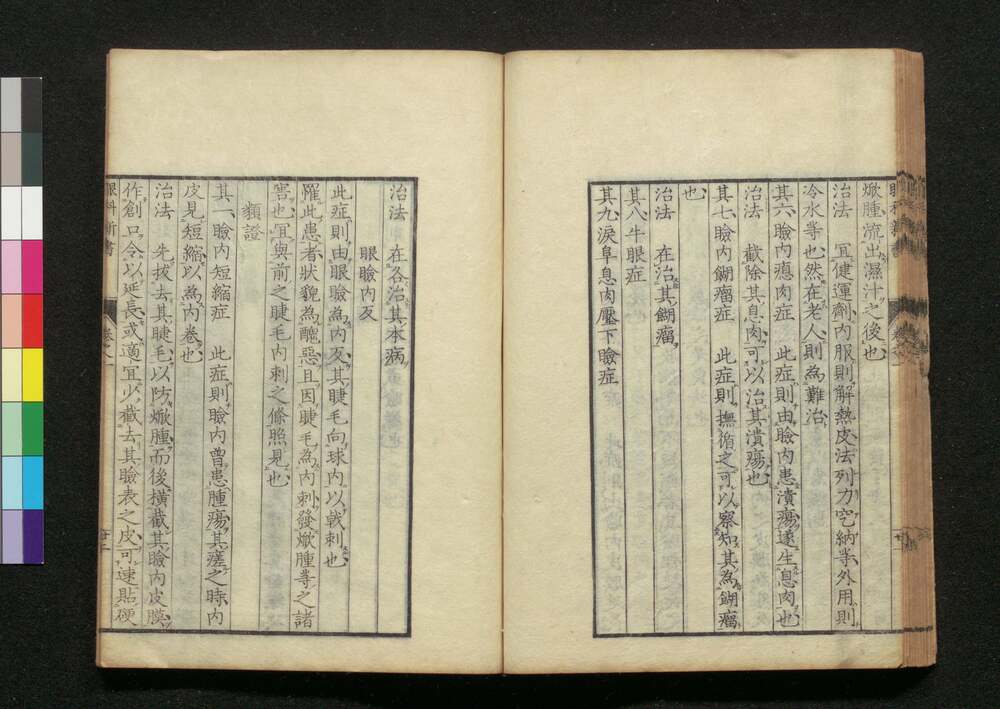 焮腫流出濕汁之後也
治法 宜健運劑內服則解熱皮法列力究納等外用則
冷水等也然在老人則為難治
其六瞼內瘜肉症 此症則由瞼內患潰瘍遂生息肉也
治法 截除其息肉可以治其潰瘍也
其七瞼內餬瘤症 此症則撫循之可以察知其為餬瘤
也
治法 在治其餬瘤
其八牛眼症
其九淚阜息肉壓下瞼症
治法 在各治其本病
眼瞼內反
此症則由眼瞼為內反其睫毛向球內以戟刺也
罹此患者狀貌為醜惡且因睫毛為內刺發焮腫等之諸
害也宜與前之睫毛內刺之條照見也
類證
其一瞼內短縮症 此症則瞼內曾患腫瘍其瘥之時內
皮見短縮以為內卷也
治法 先拔去其睫毛以防焮腫而後橫截其瞼內皮膜
作創口令以延長或適宜少截去其瞼表之皮可速貼硬
眼科新書